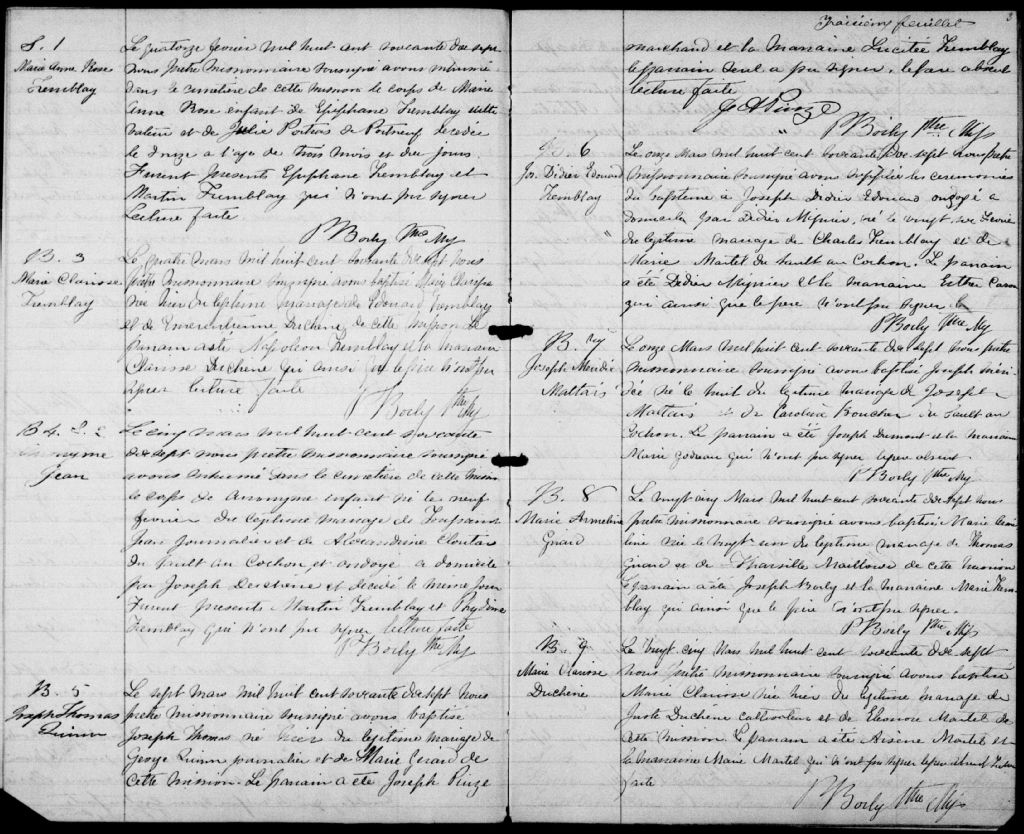 S. 1
Marie Anne Rose
Tremblay
Le quatorze février mil huit cent soixante dix sept
nous prêtre missionnaire soussigné avons inhumé
dans le cimetière de cette mission le corps de Marie
Anne Rose enfant de Epiphane Tremblay culti
vateur et de Julie Poitras de Portneuf décédée
le treize a l'age de trois mois et dix jours
Furent présents Epiphane Tremblay et
Martin Tremblay qui n'ont pu signer
Lecture faite
P Boily Ptre Mis
B. 3
Marie Clarisse
Tremblay
Le quatre mars mil huit cent soixante dix sept nous
prêtre missionnaire soussigné avons baptisé Marie Clarisse
née hier du légitime mariage de Edouard Tremblay
et de Emerentienne Duchêne de cette mission Le
parrain a été Napoléon Tremblay et la marraine
Clarisse Duchene qui ainsi que le père n'ont pu
signer lecture faite
P Boily Ptre Mis
B 4. S. 2
Anonyme
Jean
Le cinq mars mil huit cent soixante
dix sept nous prêtre missionnaire soussigné
avons inhumé dans le cimetière de cette mission
le corps de Anonyme enfant né le neuf
février du légitime mariage de Toussaint
Jean journalier et de Alexandrine Cloutier
du Sault au Cochon et ondoyé a domicile
par Joseph et décédé le même jour
Furent présents Martin Tremblay et
Tremblay qui n'ont pu signer lecture faite
P Boily Ptre Mis
B. 5
Joseph Thomas
Quinn
Le sept mars mil huit cent soixante dix sept nous
prêtre missionnaire soussigné avons baptisé
Joseph Thomas né hier du légitime mariage de
George Quinn journalier et de Marie Girard de
cette mission. Le parrain a été Joseph Pinze
Troisième feuillet
3
marchand et la marraine Tremblay
le parrain seul a pu signer, le père absent
lecture faite
P Boily Ptre Mis
B. 6
Jos. Didier Edouard
Tremblay
Le onze Mars mil huit cent soixante dix sept nous prêtre
missionnaire soussigné avons suppléé les ceremonies
du baptême à Joseph Didier Edouard ondoyé à
domicile par Didier Mignier, né le vingt février
du légitime mariage de Charles Tremblay et de
Marie Martel du Sault au Cochon. Le parrain
a été Didier Mignier et la marraine Esther Caron
qui ainsi que le père n'ont pu signer
P Boily Ptre Mis
B. 7
Joseph Méridé
Maltais
Le onze Mars mil huit cent soixante dix sept nous prêtre
missionnaire soussigné avons baptisé Joseph Méri
dée né le huit du légitime mariage de Joseph
Maltais et de Caroline Boucher du Sault au
Cochon. Le parrain a été Joseph Dumont et la marraine
Marie Godreau qui n'ont pu signer le père absent
P Boily Ptre Mis
B. 8
Marie Armeline
Girard
Le vingt cinq Mars mil huit cent soixante dix sept nous
prêtre missionnaire soussigné avons baptisée Marie Arme
line née le vingt un du légitime mariage de Thomas
Girard et de Tharsille Mailloux de cette mission
le parrain a été Joseph Boily et la marraine Marie Trem
blay qui ainsi que le père n'ont pu signer.
P Boily Ptre Mis
B. 9
Marie Clarisse
Duchene
Le vingt cinq Mars mil huit cent soixante dix sept
nous prêtre missionnaire soussigné avons baptisé
Marie Clarisse née hier du légitime mariage de
Juste Duchêne cultivateur et de Eléonore Martel de
cette mission Le parrain a été Arsène Martel et
la marraine Marie Martel qui n'ont pu signer le père absent lecture
faite
P Boily Ptre Mis